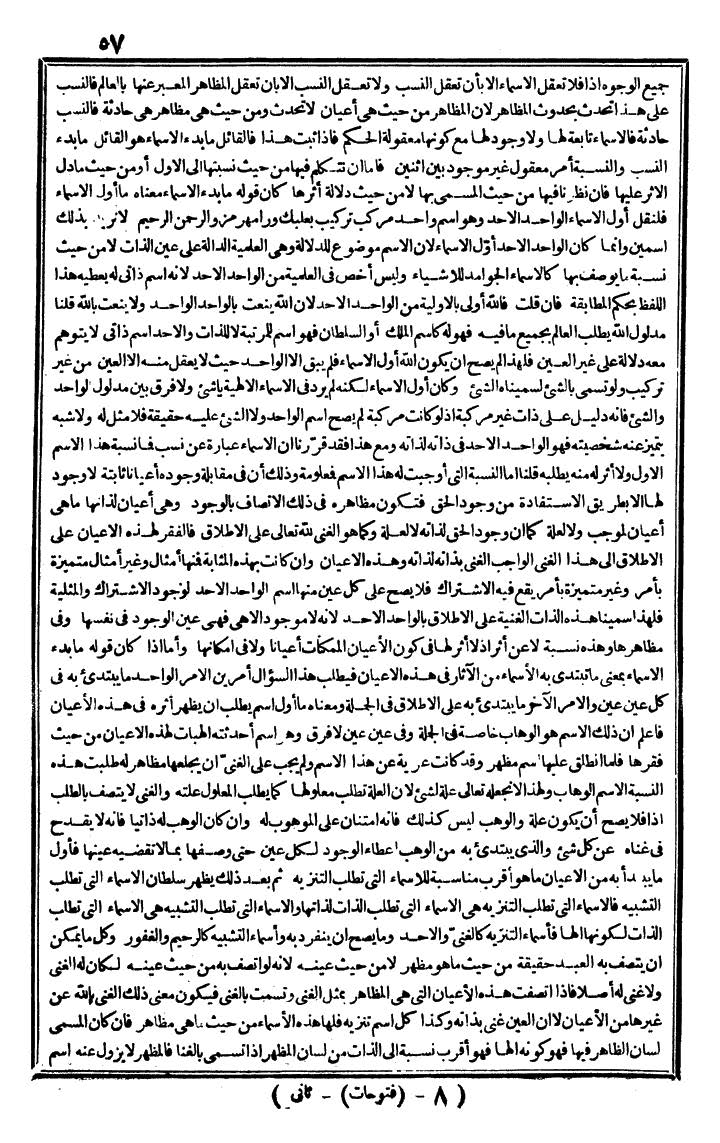 ٥٧
جميع الوجوه اذا فلا تعقل الاسماء الا بأن تعقل النسب ولا تعقل النسب الا بان تعقل المظاهر المعبر عنها بالعالم فالنسب
على هذا تحدث بحدوث المظاهر لان المظاهر من حيث هى أعيان لا تحدث ومن حيث هى مظاهر هى حادثة فالنسب
حادثة فالاسماء تابعة لها ولا وجود لها مع كونها معقولة الحكم فاذا ثبت هذا فالقائل ما بدء الاسماء هو القائل ما بدء
النسب والنسبة أمر معقول غير موجود بين اثنين فاما ان تتكلم فيها من حيث نسبتها الى الاول أو من حيث ما دل
الاثر عليها فان نظرنا فيها من حيث المسمى بها لا من حيث دلالة أثرها كان قوله ما بدء الاسماء معناه ما أول الاسماء
فلنقل أول الاسماء الواحد الاحد وهو اسم واحد مركب تركيب بعلبك ورامهرمز والرحمن الرحيم لا نريد بذلك
اسمين وانما كان الواحد الاحد أوّل الاسماء لان الاسم موضوع للدلالة وهى العلمية الدالة على عين الذات لا من حيث
نسبة ما يوصف بها كالاسماء الجوامد للاشياء وليس أخص فى العلمية من الواحد الاحد لانه اسم ذاتى له يعطيه هذا
اللفظ بحكم المطابقة فان قلت فالله أولى بالاولية من الواحد الاحد لان الله ينعت بالواحد الواحد ولا ينعت بالله قلنا
مدلول الله يطلب العالم بجميع ما فيه فهو له كاسم الملك أو السلطان فهو اسم للمرتبة لا للذات والاحد اسم ذاتى لا يتوهم
معه دلالة على غير العين فلهذا لم يصح ان يكون الله أول الاسماء فلم يبق الا الواحد حيث لا يعقل منه الا العين من غير
تركيب ولو تسمى بالشئ لسميناه الشئ وكان أول الاسماء لكنه لم يرد فى الاسماء الالهية يا شئ ولا فرق بين مدلول الواحد
والشئ فانه دليل على ذات غير مركبة اذ لو كانت مركبة لم يصح اسم الواحد ولا الشئ عليه حقيقة فلا مثل له ولا شبه
يتميز عنه شخصيته فهو الواحد الاحد فى ذاته لذاته ومع هذا فقد قرّرنا ان الاسماء عبارة عن نسب فما نسبة هذا الاسم
الاول ولا أثر له منه يطلبه قلنا اما النسبة التى أوجبت له هذا الاسم فمعلومة وذلك أن فى مقابلة وجوده أعيانا ثابتة لا وجود
لها الا بطريق الاستفادة من وجود الحق فتكون مظاهره فى ذلك الاتصاف بالوجود وهى أعيان لذاتها ما هى
أعيان لموجب ولا لعلة كما ان وجود الحق لذاته لا لعلة وكما هو الغنى لله تعالى على الاطلاق فالفقر لهذه الاعيان على
الاطلاق الى هذا الغنى الواجب الغنى بذاته لذاته وهذه الاعيان وان كانت بهذه المثابة فمنها أمثال وغير أمثال متميزة
بأمر وغير متميزة بأمر يقع فيه الاشتراك فلا يصح على كل عين منها اسم الواحد الاحد لوجود الاشتراك والمثلية
فلهذا سمينا هذه الذات الغنية على الاطلاق بالواحد الاحد لانه لا موجود الا هى فهى عين الوجود فى نفسها وفى
مظاهرها وهذه نسبة لا عن أثر اذ لا أثر لها فى كون الأعيان الممكنات أعيانا ولا فى امكانها وأما اذا كان قوله ما بدء
الاسماء بمعنى ما تبتدئ به الأسماء من الآثار فى هذه الاعيان فيطلب هذا السؤال أمرين الامر الواحد ما يبتدئ به فى
كل عين عين والامر الآخر ما يبتدئ به على الاطلاق فى الجملة ومعناه ما أول اسم يطلب ان يظهر أثره فى هذه الأعيان
فاعلم ان ذلك الاسم هو الوهاب خاصة فى الجملة وفى عين عين لا فرق وهو اسم أحدثته الهبات لهذه الاعيان من حيث
فقرها فلما انطلق عليها اسم مظهر وقد كانت عرية عن هذا الاسم ولم يجب على الغنى ان يجعلها مظاهر له طلبت هذه
النسبة الاسم الوهاب ولهذا لا نجعله تعالى علة لشئ لان العلة تطلب معلولها كما يطلب المعلول علته والغنى لا يتصف بالطلب
اذا فلا يصح أن يكون علة والوهب ليس كذلك فانه امتنان على الموهوب له وان كان الوهب له ذاتيا فانه لا يقدح
فى غناه عن كل شئ والذى يبتدئ به من الوهب اعطاء الوجود لكل عين حتى وصفها بما لا تقتضيه عينها فأول
ما يبدأ به من الاعيان ما هو أقرب مناسبة للاسماء التى تطلب التنزيه ثم بعد ذلك يظهر سلطان الاسماء التى تطلب
التشبيه فالاسماء التى تطلب التنزيه هى الاسماء التى تطلب الذات لذاتها والاسماء التى تطلب التشبيه هى الاسماء التى تطلب
الذات لكونها الها فأسماء التنزيه كالغنىّ والاحد وما يصح ان ينفرد به وأسماء التشبيه كالرحيم والغفور وكل ما يمكن
ان يتصف به العبد حقيقة من حيث ما هو مظهر لا من حيث عينه لانه لو اتصف به من حيث عينه لكان له الغنى
ولا غنى له أصلا فاذا اتصفت هذه الأعيان التى هى المظاهر بمثل الغنى وتسمت بالغنى فيكون معنى ذلك الغنى بالله عن
غيرها من الأعيان لا ان العين غنى بذاته وكذا كل اسم تنزيه فلها هذه الأسماء من حيث ما هى مظاهر فان كان المسمى
لسان الظاهر فيها فهو كونه الها فهو أقرب نسبة الى الذات من لسان المظهر اذا تسمى بالغنا فالمظهر لا يزول عنه اسم
( ٨ - (فتوحات) - ثانى )